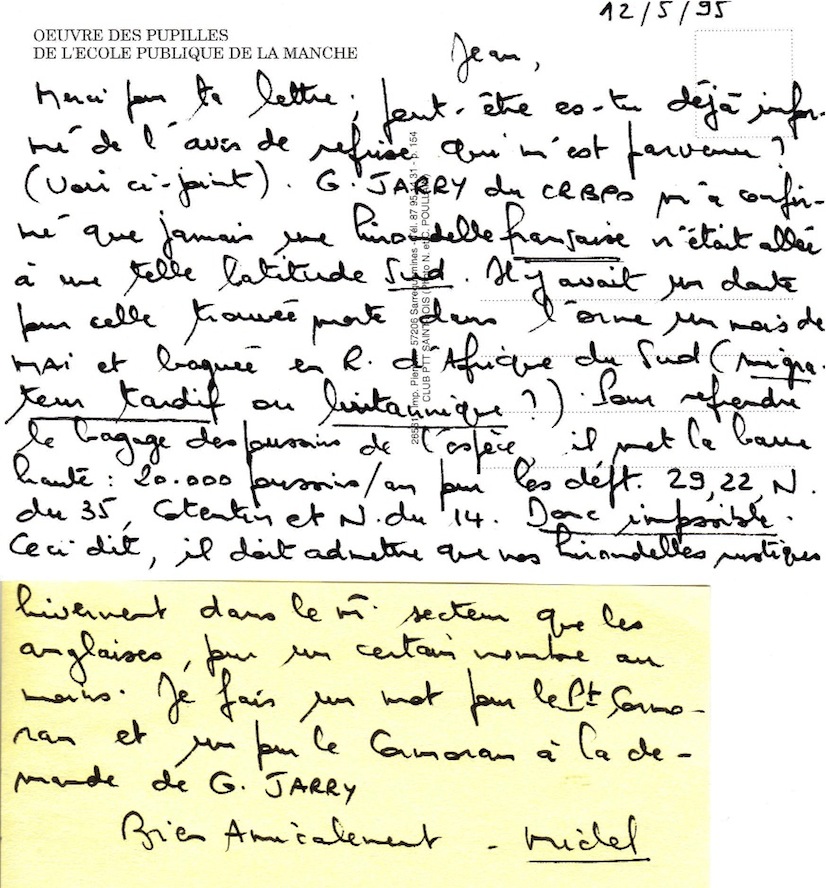 12/5/95
OEUVRE DES PUPILLES
DE L'ECOLE PUBLIQUE DE LA MANCHE
Jean,
Merci pour ta lettre ; peut-être es-tu déjà infor-
mé de l'avis de reprise qui m'est parvenu ?
(Voir ci-joint). G. JARRY du CRBPO m'a confir-
mé que jamais une hirondelle française n'était allée
à une telle latitude Sud. Il y avait un doute
pour celle trouvée morte dans l'Orne un mois de
MAI et baguée en R. d'Afrique du Sud (migra-
teur tardif ou britannique ?) Pour reprendre
le bagage des poussins de l'espèce, il met la barre
haute : 20.000 poussins/an pour les dépt. 29, 22, N.
du 35, Cotentin et N. du 14. Donc impossible.
Ceci dit, il doit admettre que nos hirondelles rustiques
hivernent dans le m. secteur que les
anglaises, pour un certain nombre au
moins. Je fais un mot pour le Pt Cormo-
ran et un pour le Cormoran à la de-
mande de G. JARRY
Bien Amicalement - Michel
57206 Sarreguemines
CLUB PTT